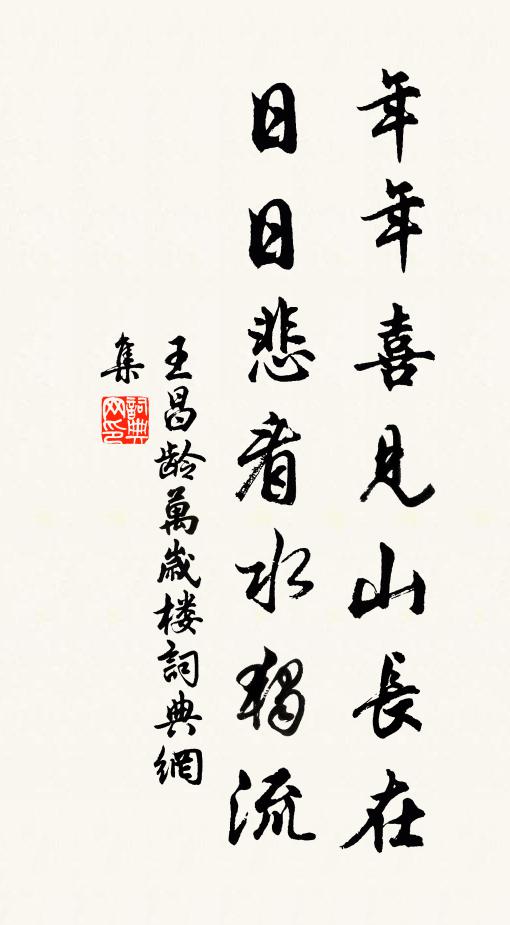 年年喜見山長在
日日悲看水獨流
王昌龄萬歲楼詞典網
集
詞典網印